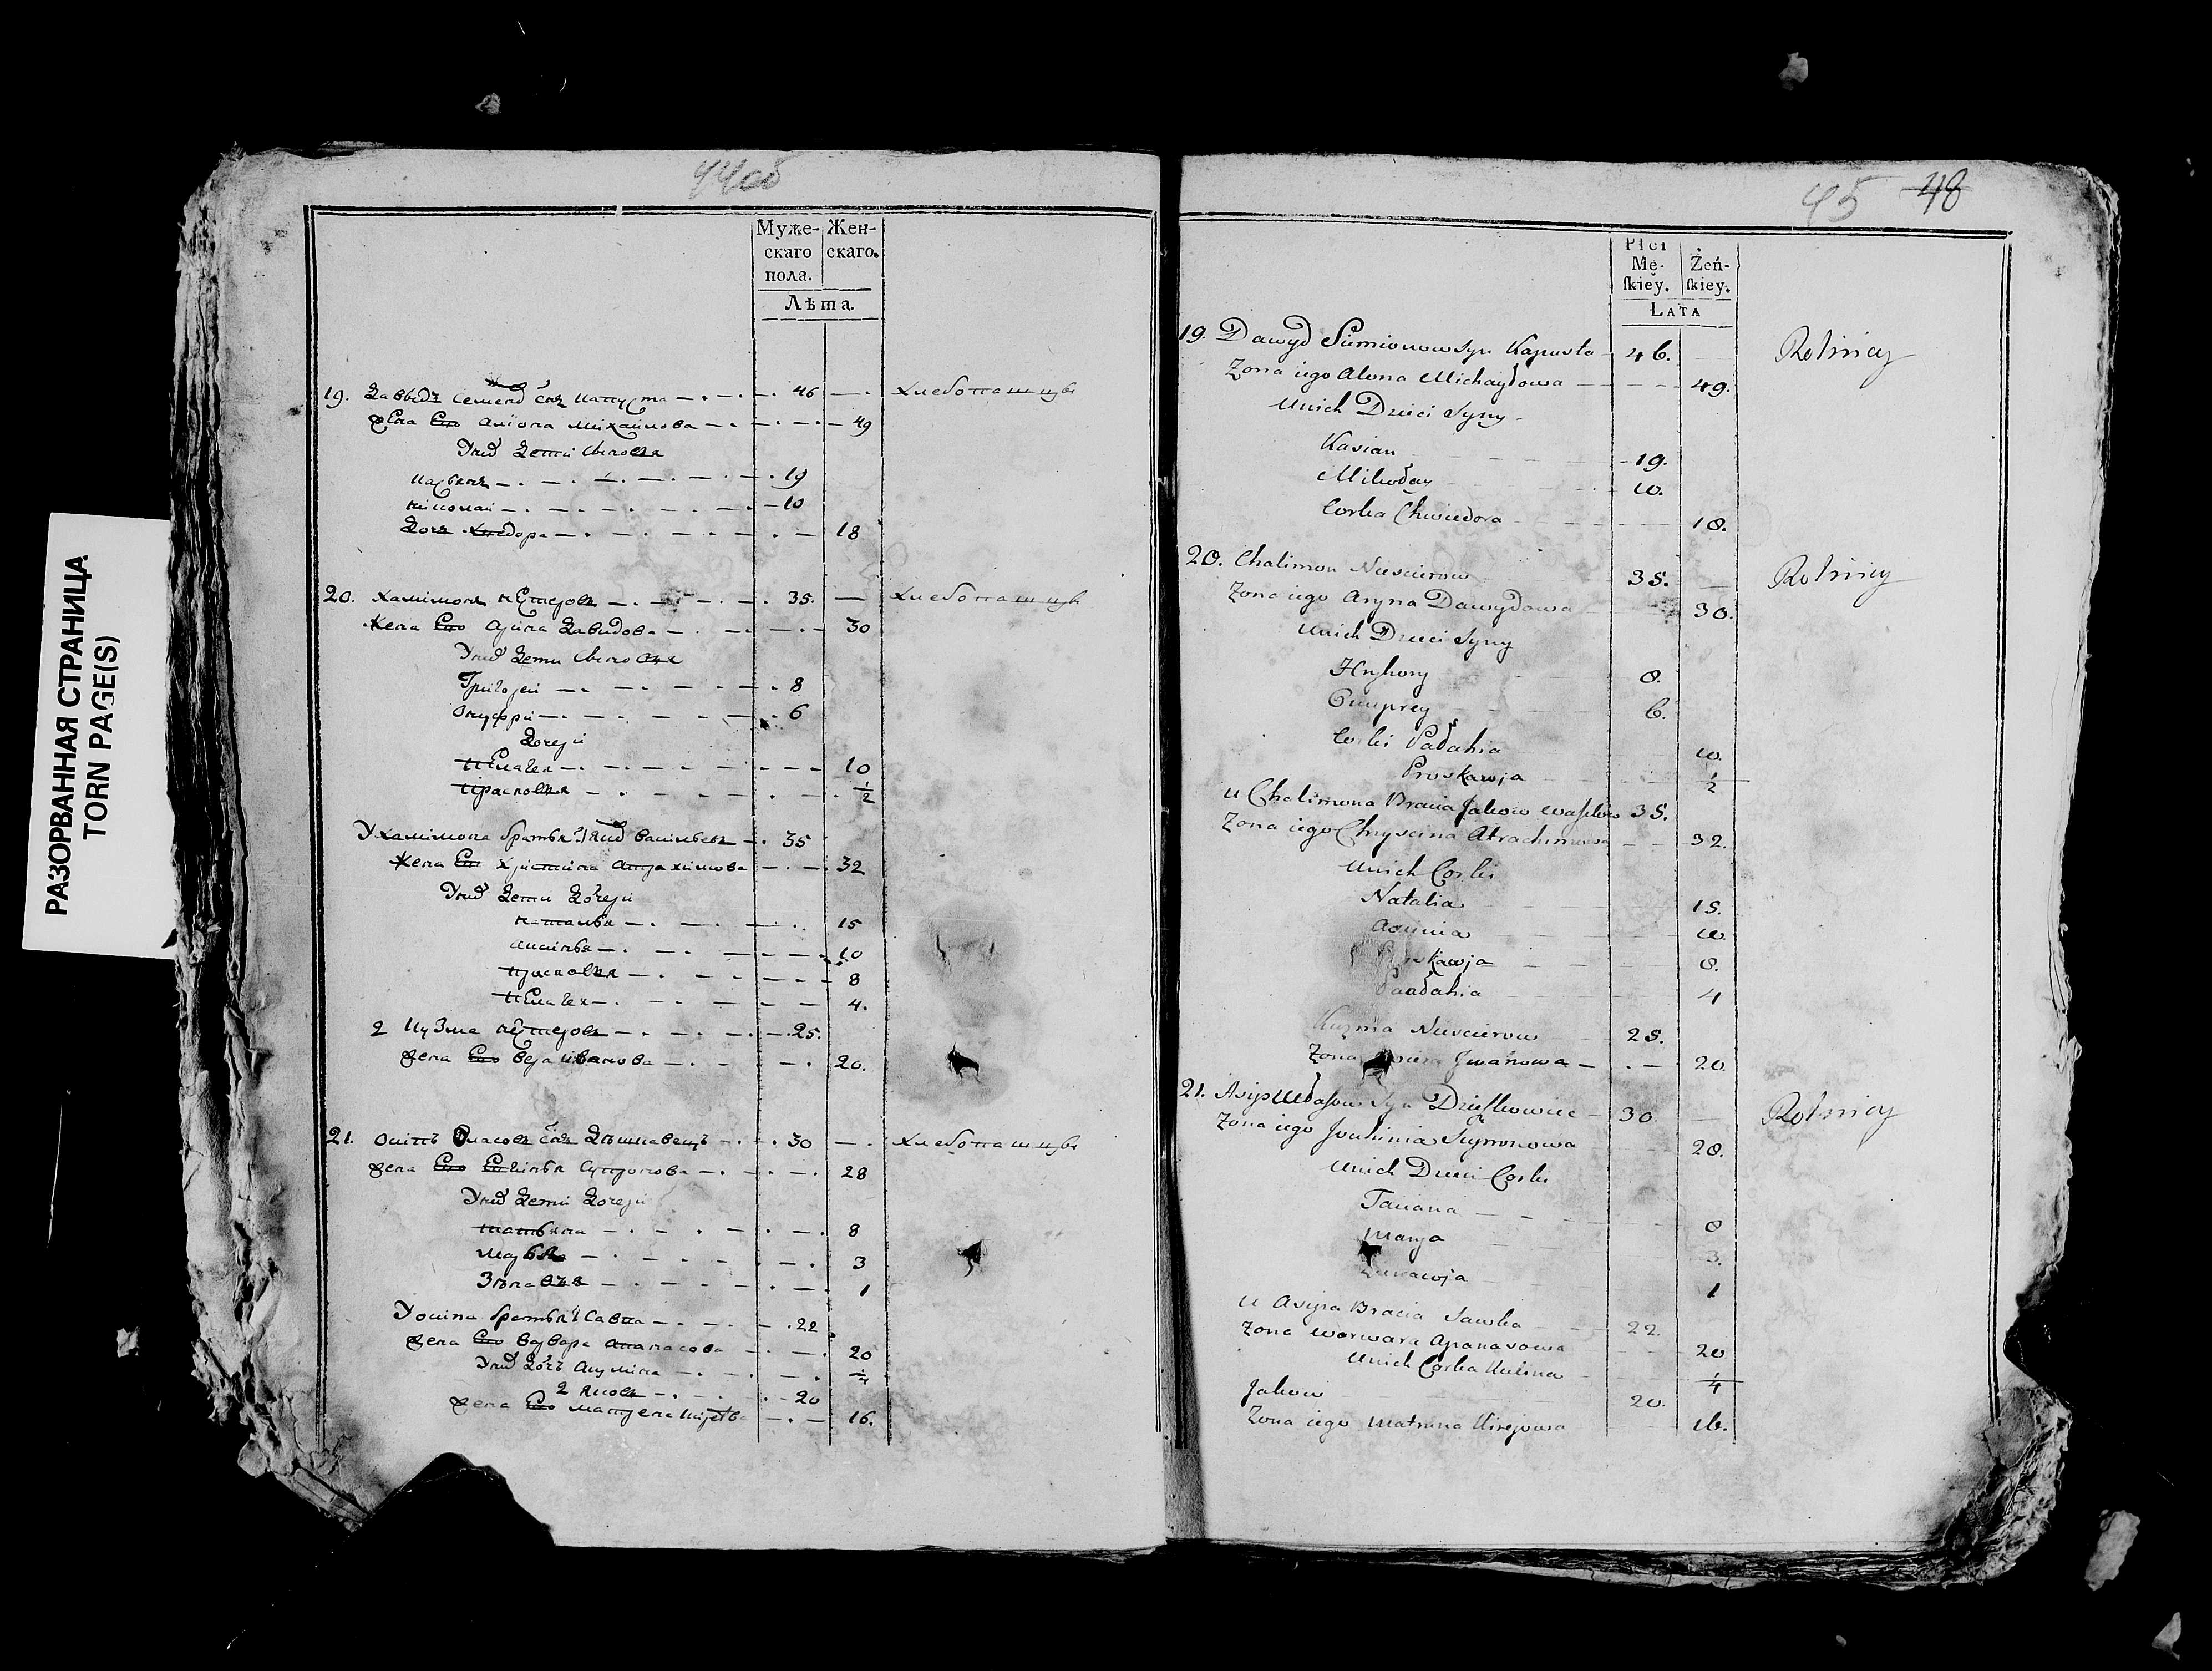 РАЗОРВАННАЯ СТРАНИЦА
TORN PAGE(S)
44об
Муже-скаго пола. Жен-скаго.
Лѣта.
19. Давыдъ Семенов сын Капуста 46 — хлебопашцы
Жена Его Алiона Михайлова 49
У них Дети Сыновья
Касьян 19
Николай 10
Дочь Хведора 18
20. Халiмонъ Нестеровъ 35. — хлебопашцы
Жена Его Арiна Давидова 30
У них Дети Сыновья
Григорей 8
Онуфри 6
Дочери
Пелагея 10
Прасковья 1/2
У Халiмона братья 1 Яков Васильевъ 35
Жена Его Христина Атрахимова 32
У них Дети Дочери
Наталья 15
Аксинья 10
Прасковья 8
Пелагея 4.
2 Кузма Нестеровъ 25.
Жена Его Вера Иванова 20.
21. Осипъ Власовъ сын Дѣшковецъ 30 — хлебопашцы
Жена Его Евгинья 28
У них Дети Дочери
Татьяна 8
Марья 3
Зѣновья 1
У Осипа братья 1 Савка 22
Жена Его Варвара Апанасова 20
У них Дочь Акулина 1/4
2 Яковъ 20
Жена Его Матрена Кирѣева 16.
45 48
Płci Mę-ſkiey. Żeń-ſkiey.
LATA
19. Dawyd Simionow Syn Kapusta 46. Rolnicy
Zona iego Alona Michayłowa 49.
Unich Dzieci Syny
Kasian 19.
Mikołay 10.
Corka Chwiedora 18.
20. Chalimon Niescierow 35. Rolnicy
Zona iego Aryna Dawydowa 30.
Unich Dzieci Syny
Hryhory 8.
Onuprey 6.
Corki Pałahia 10.
Proskawja 1/2
U Chalimona Bracia Jakow Wasilew 35.
Zona iego Chryscina Atrachimowa 32.
Unich Corki
Natalia 15.
Axinia 10.
8.
Pałahia 4
Kuzma Niescierow 25.
Zona Jwanowa 20
21. Asip Ułasow Syn Dzieszkowiec 30. Rolnicy
Zona iego Jouhinia 28.
Unich Dzieci Corki
Taciana 8
Marja 3.
1
U Asipa Bracia Sawka 22.
Zona Warwara Apanasowa 20
Unich Corka Kulina 1/4
Jakow 20.
Zona iego Matruna Kirejowa 16.